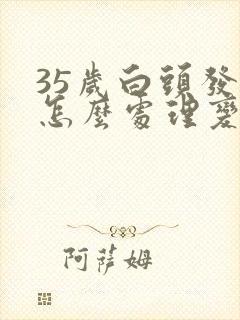 35歲白頭發
怎麼處理變
阿薩姆